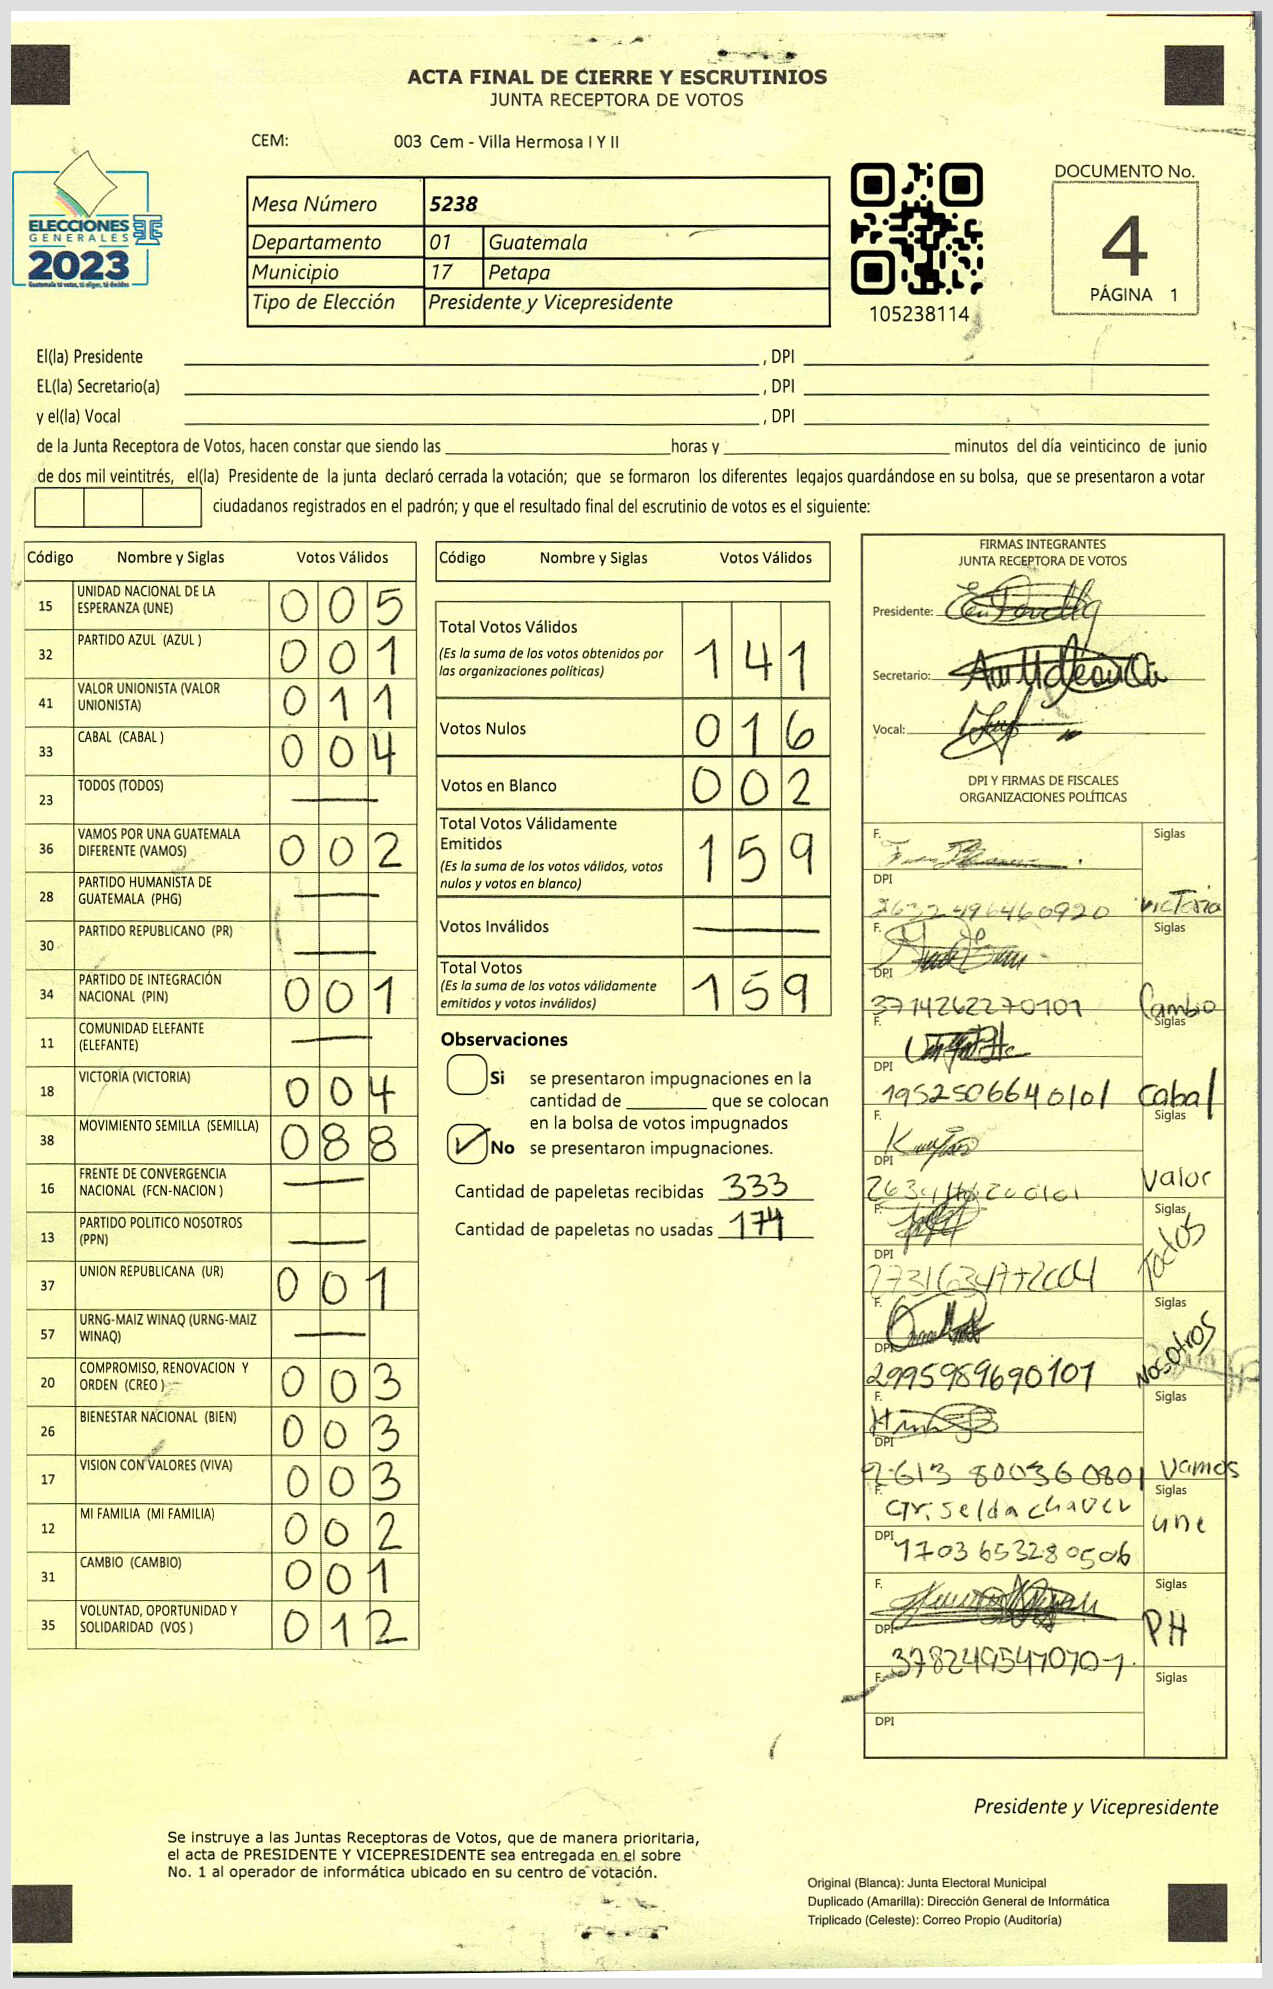 ACTA FINAL DE CIERRE Y ESCRUTINIOS
JUNTA RECEPTORA DE VOTOS
CEM: 003 Cem - Villa Hermosa I Y II
ELECCIONES
GENERALES
2023
Guatemala tú votas, tú eliges, tú decides
Mesa Número 5238
Departamento 01 Guatemala
Municipio 17 Petapa
Tipo de Elección Presidente y Vicepresidente
105238114
DOCUMENTO No.
4
PÁGINA 1
El(la) Presidente , DPI
EL(la) Secretario(a) , DPI
y el(la) Vocal , DPI
de la Junta Receptora de Votos, hacen constar que siendo las horas y minutos del día veinticinco de junio
de dos mil veintitrés, el(la) Presidente de la junta declaró cerrada la votación; que se formaron los diferentes legajos guardándose en su bolsa, que se presentaron a votar
ciudadanos registrados en el padrón; y que el resultado final del escrutinio de votos es el siguiente:
Código Nombre y Siglas Votos Válidos
15 UNIDAD NACIONAL DE LA ESPERANZA (UNE) 005
32 PARTIDO AZUL (AZUL ) 001
41 VALOR UNIONISTA (VALOR UNIONISTA) 011
33 CABAL (CABAL ) 004
23 TODOS (TODOS) —
36 VAMOS POR UNA GUATEMALA DIFERENTE (VAMOS) 002
28 PARTIDO HUMANISTA DE GUATEMALA (PHG) —
30 PARTIDO REPUBLICANO (PR) —
34 PARTIDO DE INTEGRACIÓN NACIONAL (PIN) 001
11 COMUNIDAD ELEFANTE (ELEFANTE) —
18 VICTORIA (VICTORIA) 004
38 MOVIMIENTO SEMILLA (SEMILLA) 088
16 FRENTE DE CONVERGENCIA NACIONAL (FCN-NACION ) —
13 PARTIDO POLITICO NOSOTROS (PPN) —
37 UNION REPUBLICANA (UR) 001
57 URNG-MAIZ WINAQ (URNG-MAIZ WINAQ) —
20 COMPROMISO, RENOVACION Y ORDEN (CREO ) 003
26 BIENESTAR NACIONAL (BIEN) 003
17 VISION CON VALORES (VIVA) 003
12 MI FAMILIA (MI FAMILIA) 002
31 CAMBIO (CAMBIO) 001
35 VOLUNTAD, OPORTUNIDAD Y SOLIDARIDAD (VOS ) 012
Código Nombre y Siglas Votos Válidos
Total Votos Válidos 141
(Es la suma de los votos obtenidos por
las organizaciones políticas)
Votos Nulos 016
Votos en Blanco 002
Total Votos Válidamente
Emitidos 159
(Es la suma de los votos válidos, votos
nulos y votos en blanco)
Votos Inválidos —
Total Votos 159
(Es la suma de los votos válidamente
emitidos y votos inválidos)
Observaciones
Si se presentaron impugnaciones en la
cantidad de que se colocan
en la bolsa de votos impugnados
No se presentaron impugnaciones.
Cantidad de papeletas recibidas 333
Cantidad de papeletas no usadas 174
FIRMAS INTEGRANTES
JUNTA RECEPTORA DE VOTOS
Presidente:
Secretario:
Vocal:
DPI Y FIRMAS DE FISCALES
ORGANIZACIONES POLÍTICAS
F. Siglas
DPI
victoria
F. Siglas
DPI
3714262270101 Cambio
F. Siglas
DPI
1952506640101 Cabal
F. Siglas
DPI
Valor
F. Siglas
DPI
Todos
F. Siglas
DPI
2995989690101 Nosotros
F. Siglas
DPI
2613 800360801 Vamos
F. Griselda chavez Siglas
une
DPI 1703653280506
F. Siglas
DPI
PH
F. Siglas
DPI
Presidente y Vicepresidente
Se instruye a las Juntas Receptoras de Votos, que de manera prioritaria,
el acta de PRESIDENTE Y VICEPRESIDENTE sea entregada en el sobre
No. 1 al operador de informática ubicado en su centro de votación.
Original (Blanca): Junta Electoral Municipal
Duplicado (Amarilla): Dirección General de Informática
Triplicado (Celeste): Correo Propio (Auditoría)